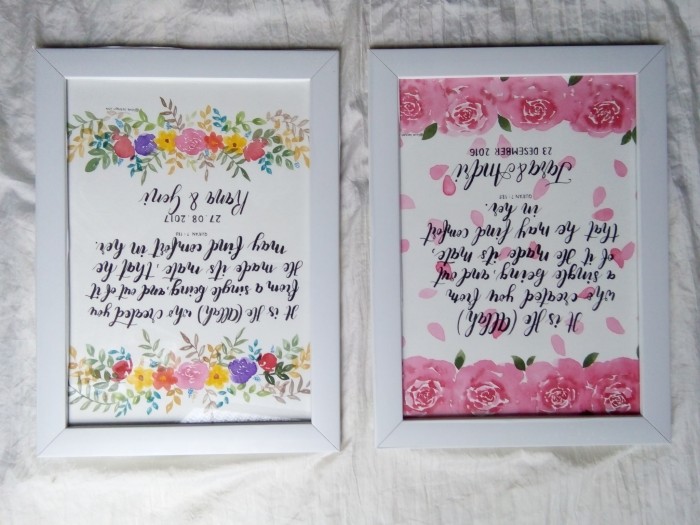 It is He (Allah)
who created you from
a single being, and out
of it He made it's mate,
that he may find comfort
in her.
QURAN 7 :
Tara & Andri
23 DESEMBER 2016
It is He (Allah) who created you
from a single being, and out of it
He made it's mate, that he
may find comfort in her.
QURAN 7 :
27 08 2017
Rana &